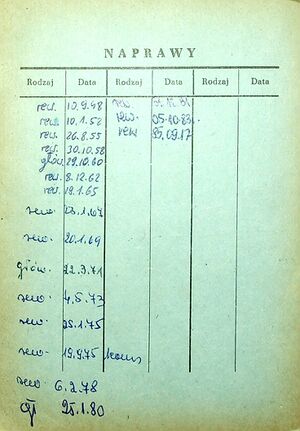 NAPRAWY
Rodzaj Data Rodzaj Data Rodzaj Data
rew. 10.9.48 rew.
rew. 10.1.52 rew. 05.10.83.
rew. 26.8.55 rew 25.09.17
rew. 30.10.58
głów. 29.10.60
rew. 8.12.62
rew. 19.1.65
rew. 13.1.67
rew. 20.1.69
głów. 22.3.71
rew. 4.5.73
rew. 25.1.75
rew. 19.9.75
rew. 6.2.78
gł 25.1.80